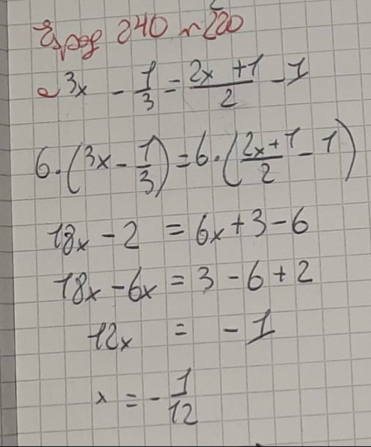 240 n 220
a 3x - 1/3 = (2x + 1)/2 - 1
6·(3x - 1/3) = 6·((2x + 1)/2 - 1)
18x - 2 = 6x + 3 - 6
18x - 6x = 3 - 6 + 2
12x = - 1
x = - 1/12